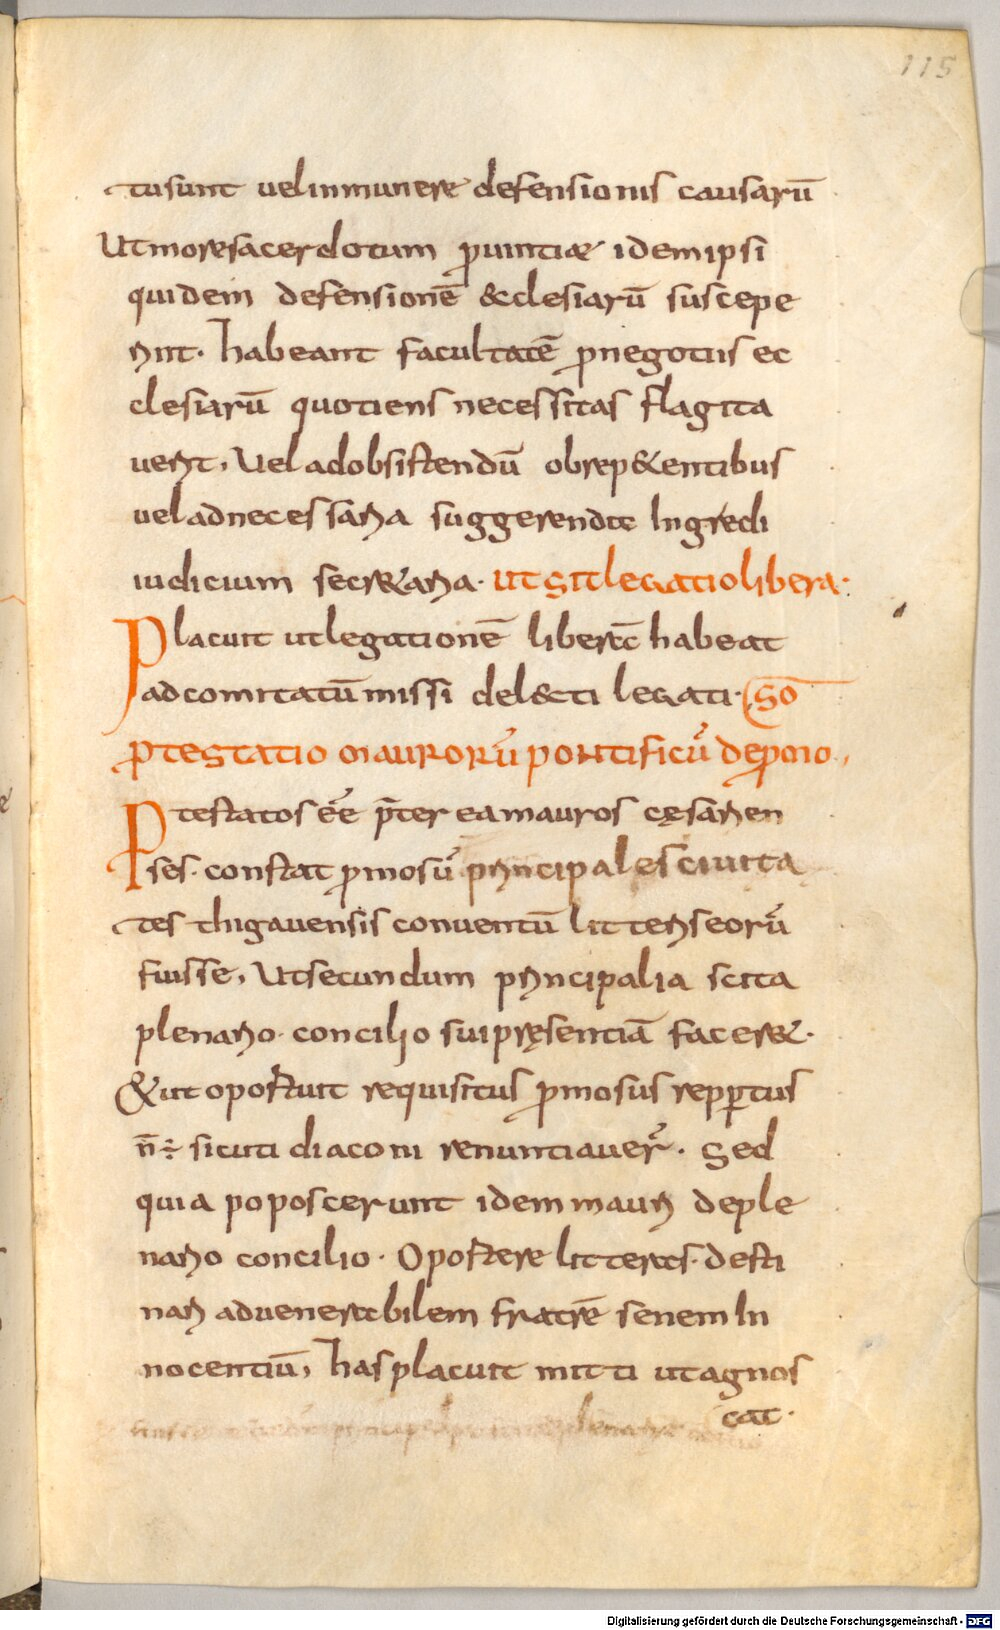 115
tusunt uelinmunere defensionis causarū
Utmoresacerdotum ꝓuintiae idemipsi
quidem defensionē &clesiarū suscepe
runt. habeant facultatē ꝓnegotiis ec
clesiarū quotiens necessitas flagita
uerit, Uel adobsistendū obrep&entibus
uel adnecessaria suggerenda Ingredi
iudicium secr&aria. UTSITLEGATIOLIBERA.
Placuit utlegationē liberā habeat
adcomitatūmissi del&ti legati. Gō
ꝓTESTATIO MAURORŪ PONTIFICŪ DEPꝓMO
Ptestatos eē p̄ter eamauros cęsarien
ses. constat ꝓmosū principales ciuita
tes thigauensis conuentū litteriseorū
fuisse, Utsecundum principalia scita
plenario. concilio sui pręsentiā facer&.
&ut oportuit requisitus ꝓmosus reppertus
n̄ ÷ sicuti diaconi renuntiauer̄. Sed
quia poposcerunt idem mauri deple
nario concilio. Oportere litteras. desti
nari aduenerabilem fratrē senem In
nocentiū, has placuit mitti utagnos
cat.
Digitalisierung gefördert durch die Deutsche Forschungsgemeinschaft - DFG